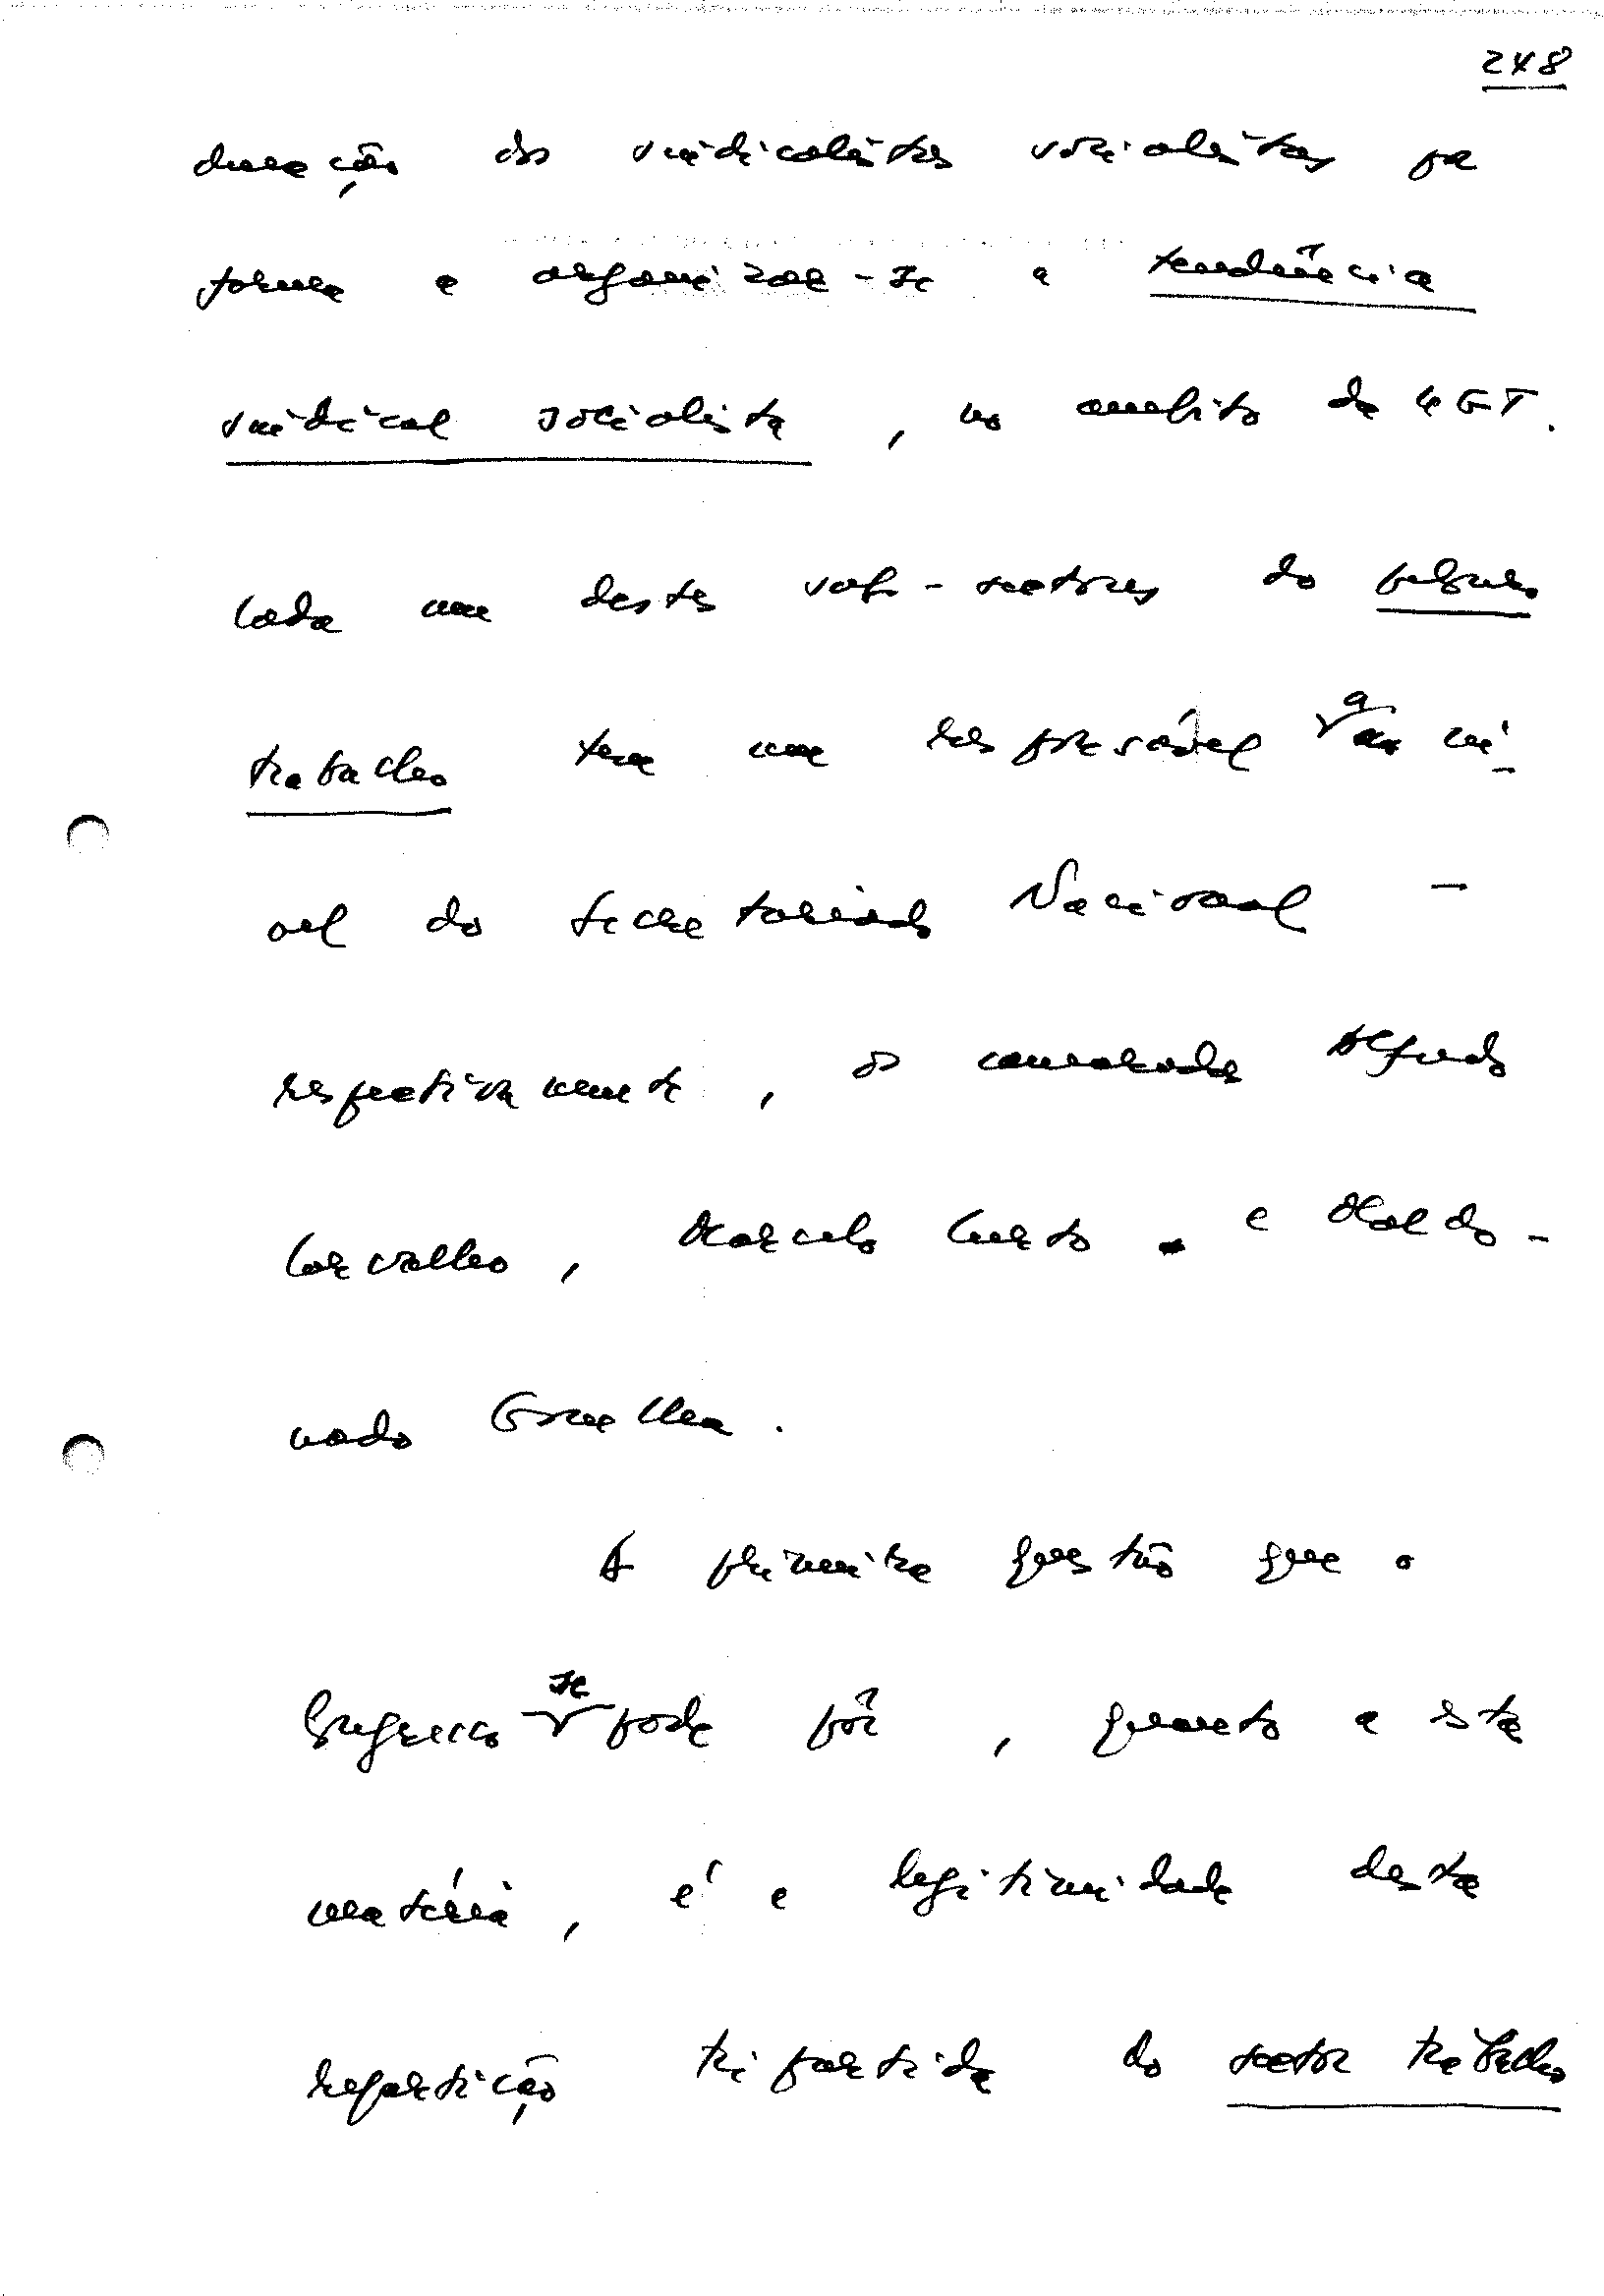 248
duração dos sindicalistas socialistas pa
forma a organizar-se a tendência
sindical socialista, no ambito da UGT.
Cada um destes sub-sectores do
trabalho tem um responsável a ní-
vel do Secretariado Nacional —
respectivamente, os camaradas Alfredo
Carvalho, Marcelo Curto e Maldo-
nado Gonelha.
A primeira questão que o
Congresso se pode pôr, quanto a esta
matéria, é a legitimidade desta
repartição tripartida do sector trabalho